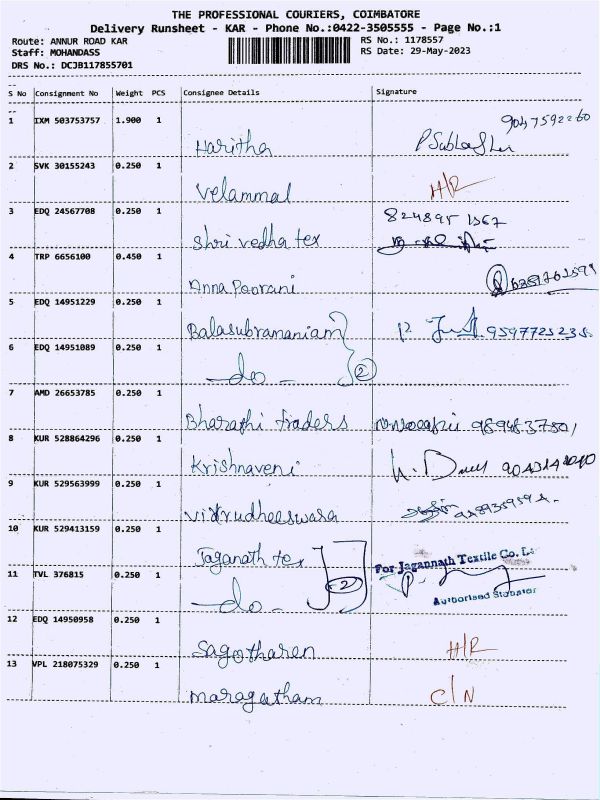 THE PROFESSIONAL COURIERS, COIMBATORE
Delivery Runsheet - KAR - Phone No.:0422-3505555 - Page No.:1
Route: ANNUR ROAD KAR RS No.: 1178557
Staff: MOHANDASS RS Date: 29-May-2023
DRS No.: DCJB117855701
S No Consignment No Weight PCS Consignee Details Signature
1 IXM 503753757 1.900 1
Haritha 9047592260
2 SVK 30155243 0.250 1
Velammal H/R
3 EDQ 24567708 0.250 1
Shri vedha tex
4 TRP 6656100 0.450 1
Anna Poorani
5 EDQ 14951229 0.250 1
Balasubramaniam 9597725235
6 EDQ 14951089 0.250 1
-do- 2
7 AMD 26653785 0.250 1
Bharathi traders
8 KUR 528864296 0.250 1
Krishnaveni
9 KUR 529563999 0.250 1
10 KUR 529413159 0.250 1
Jaganath tex For Jagannath Textile Co.
11 TVL 376815 0.250 1
-do- 2 Authorised
12 EDQ 14950958 0.250 1
Sagotharen H/R
13 VPL 218075329 0.250 1
Maragatham C/N